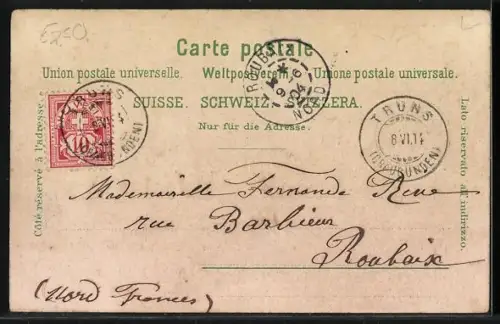 Carte postale
Union postale universelle. Weltpostverein. Unione postale universale.
SUISSE. SCHWEIZ. SVIZZERA.
Nur für die Adresse.
Côté réservé à l'adresse.
Lato riservato all'indirizzo.
TRUNS
10
ROUBAIX
NORD
TRUNS
8 VI.
(GRAUBÜNDEN)
Mademoiselle Fernande
rue Barbieux
Roubaix
(Nord France)